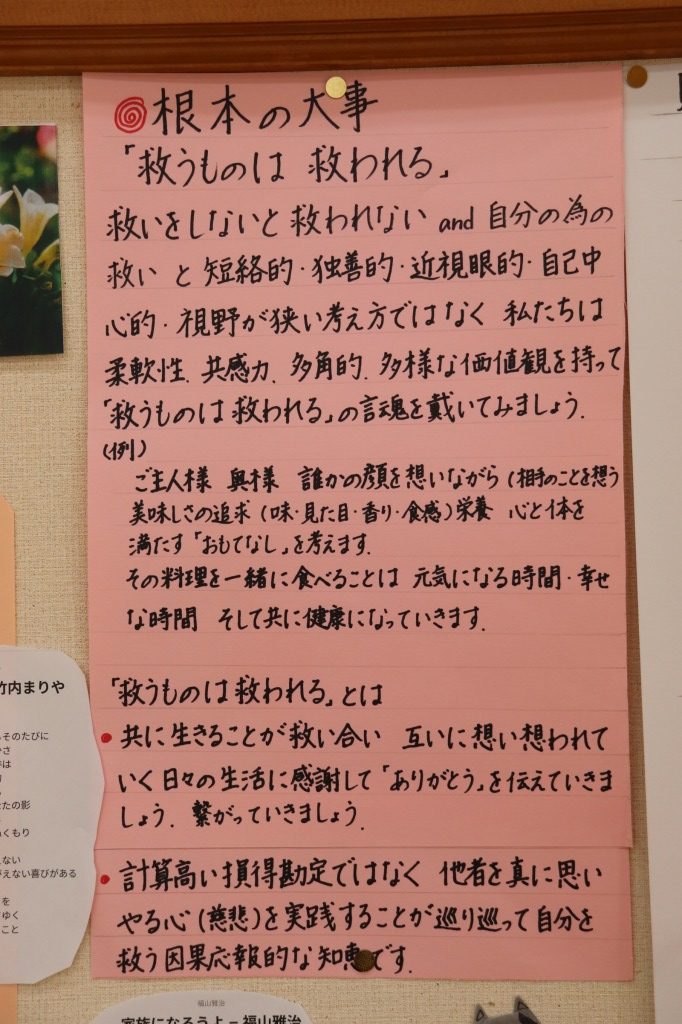 根本の大事
「救うものは 救われる」
救いをしないと救われない and 自分の為の
救い と 短絡的・独善的・近視眼的・自己中
心的・視野が狭い考え方ではなく 私たちは
柔軟性、共感力、多角的、多様な価値観を持って
「救うものは救われる」の言魂を戴いてみましょう.
(例)
ご主人様 奥様 誰かの顔を想いながら (相手のことを想う
美味しさの追求 (味・見た目・香り・食感) 栄養 心と体を
満たす「おもてなし」を考えます.
その料理を一緒に食べることは 元気になる時間・幸せ
な時間 そして共に健康になっていきます.
「救うものは救われる」とは
共に生きることが救い合い 互いに想い想われて
いく日々の生活に感謝して「ありがとう」を伝えていきま
しょう. 繋がっていきましょう.
計算高い損得勘定ではなく 他者を真に思い
やる心 (慈悲) を実践することが巡り巡って自分を
救う因果応報的な知恵です.
竹内まりや
そのたびに
さ
は
たの影
ぬくもり
えない
がえない喜びがある
を
ゆく
こと
福山雅治
家族になろうよ – 福山雅治